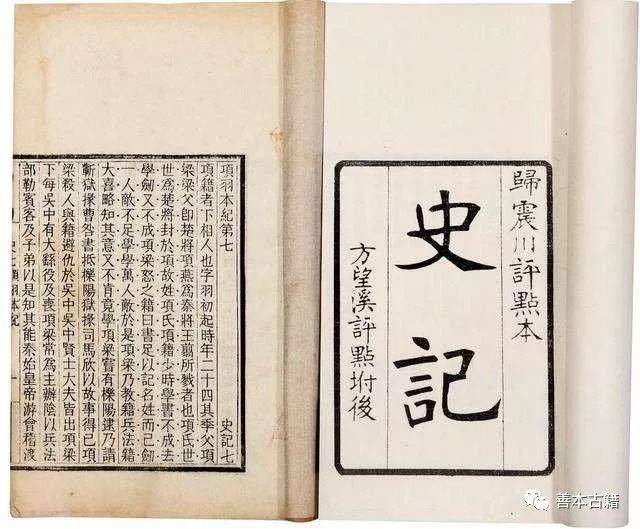 歸震川評點本
史記
方望溪評點坿後
項羽本紀第七 史記七
項籍者下相人也字羽初起時年二十四其季父項
梁梁父卽楚將項燕爲秦將王翦所戮者也項氏世
世爲楚將封於項故姓項氏項籍少時學書不成去
學劍又不成項梁怒之籍曰書足以記名姓而已劍
一人敵不足學學萬人敵於是項梁乃教籍兵法籍
大喜略知其意又不肯竟學項梁嘗有櫟陽逮乃請
蘄獄掾曹咎書抵櫟陽獄掾司馬欣以故事得已項
梁殺人與籍避仇於吳中吳中賢士大夫皆出項梁
下每吳中有大繇役及喪項梁常爲主辦陰以兵法
部勒賓客及子弟以是知其能秦始皇帝游會稽渡
善本古籍